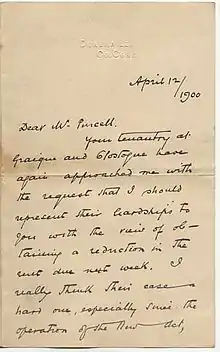 April 12/
1900
Dear Mr Purcell.
Your tenantry at
Graigue and Clostogue have
again approached me with
the request that I should
represent their hardships to
you with the view of ob-
taining a reduction in the
rent due next week. I
really think their case a
hard one, especially since the
operation of the New Act,